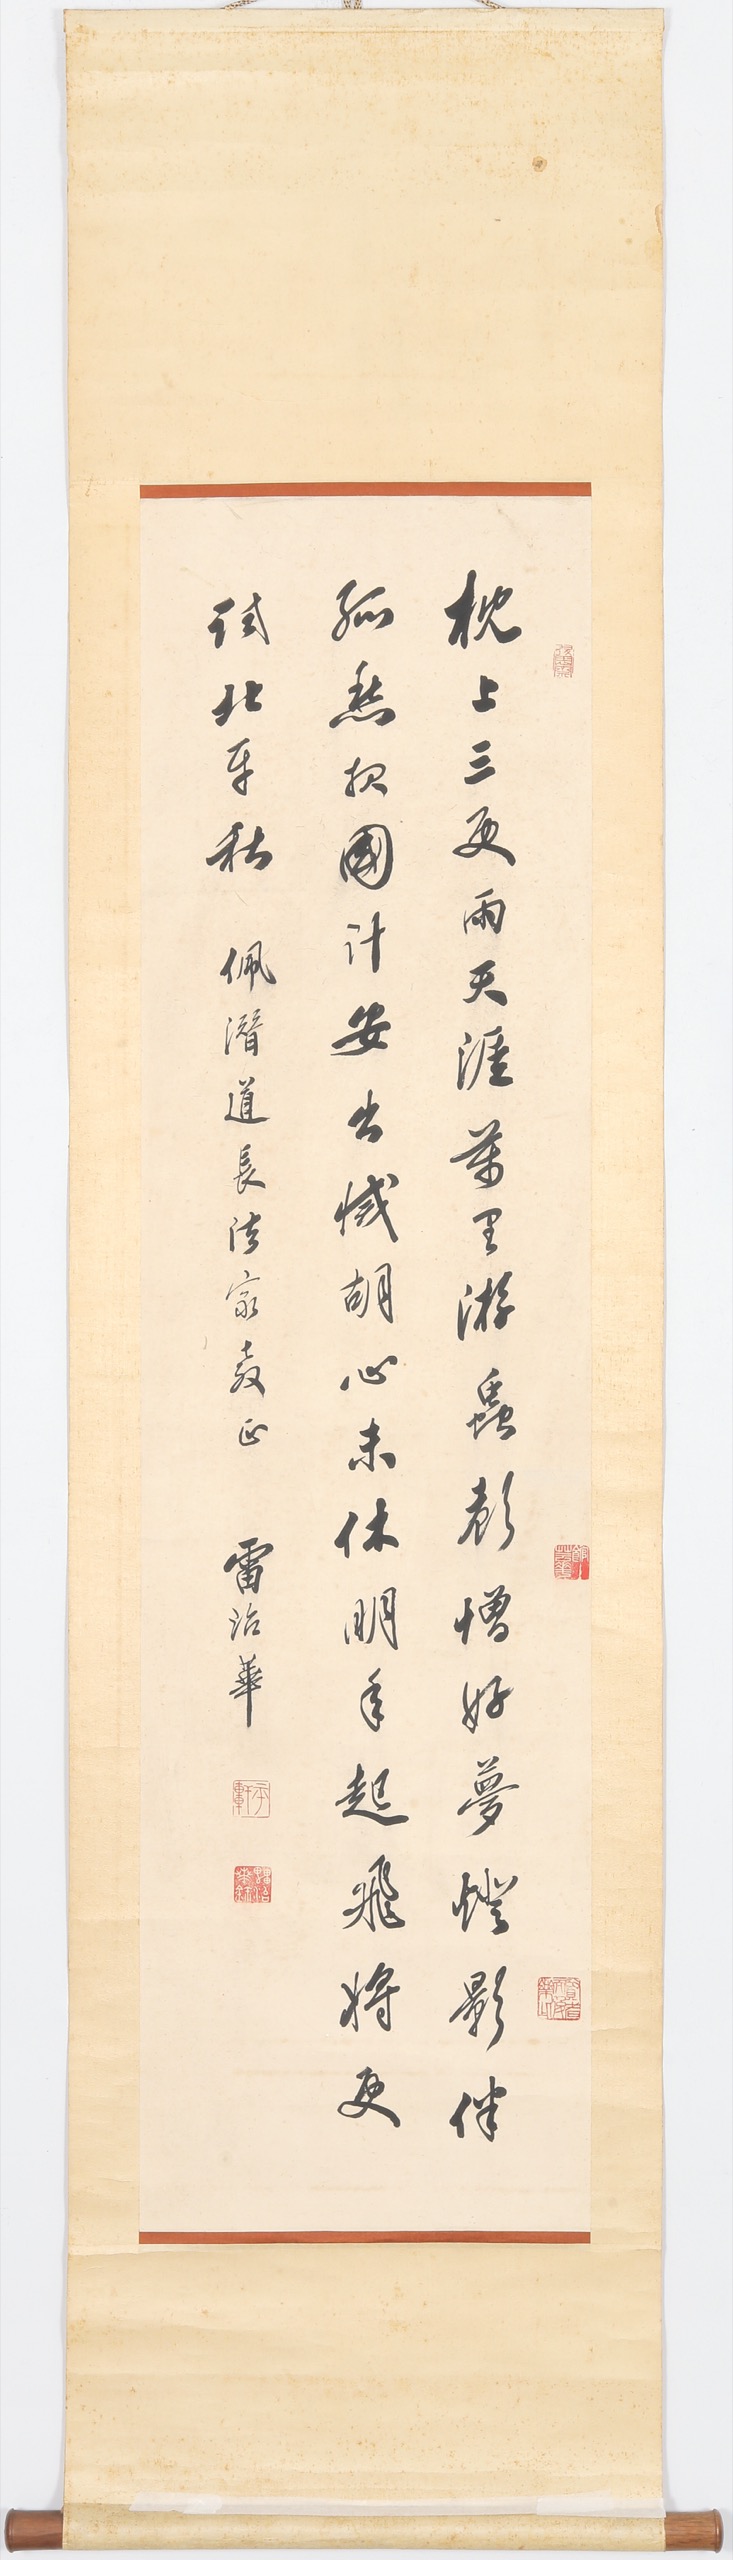 枕上三更雨天涯萬里游蟲聲憎好夢燈影伴
孤愁報國計安出滅胡心未休明年起飛將更
試北平秋 佩潛道長法家教正 雷治華